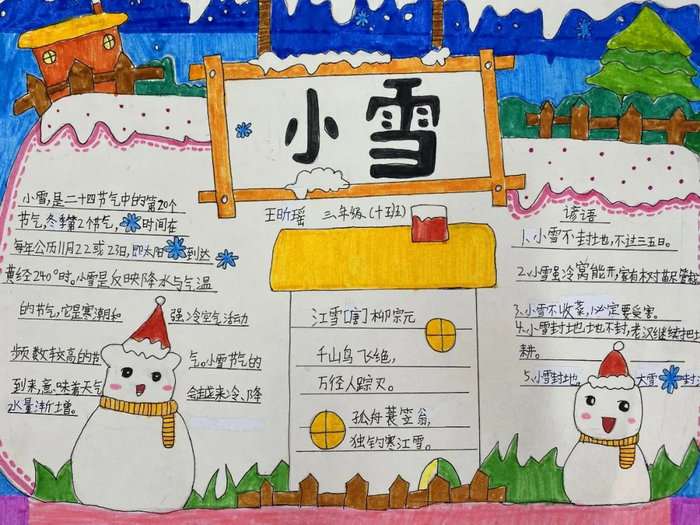 小雪
王昕瑶 三年级(十五班)
小雪,是二十四节气中的第20个
节气,冬季第2个节气,时间在
每年公历11月22或23日,即太阳到达
黄经240°时。小雪是反映降水与气温
的节气,它是寒潮和强冷空气活动
频数较高的节气。小雪节气的
到来,意味着天气会越来冷、降
水量渐增。
江雪[唐]柳宗元
千山鸟飞绝,
万径人踪灭。
孤舟蓑笠翁,
独钓寒江雪。
谚语
1、小雪不封地,不过三五日。
2、小雪虽冷窝能开,家有树苗尽管栽
3、小雪不收菜,必定要受害。
4、小雪封地地不封,老汉继续把地
耕。
5、小雪封地,大雪封